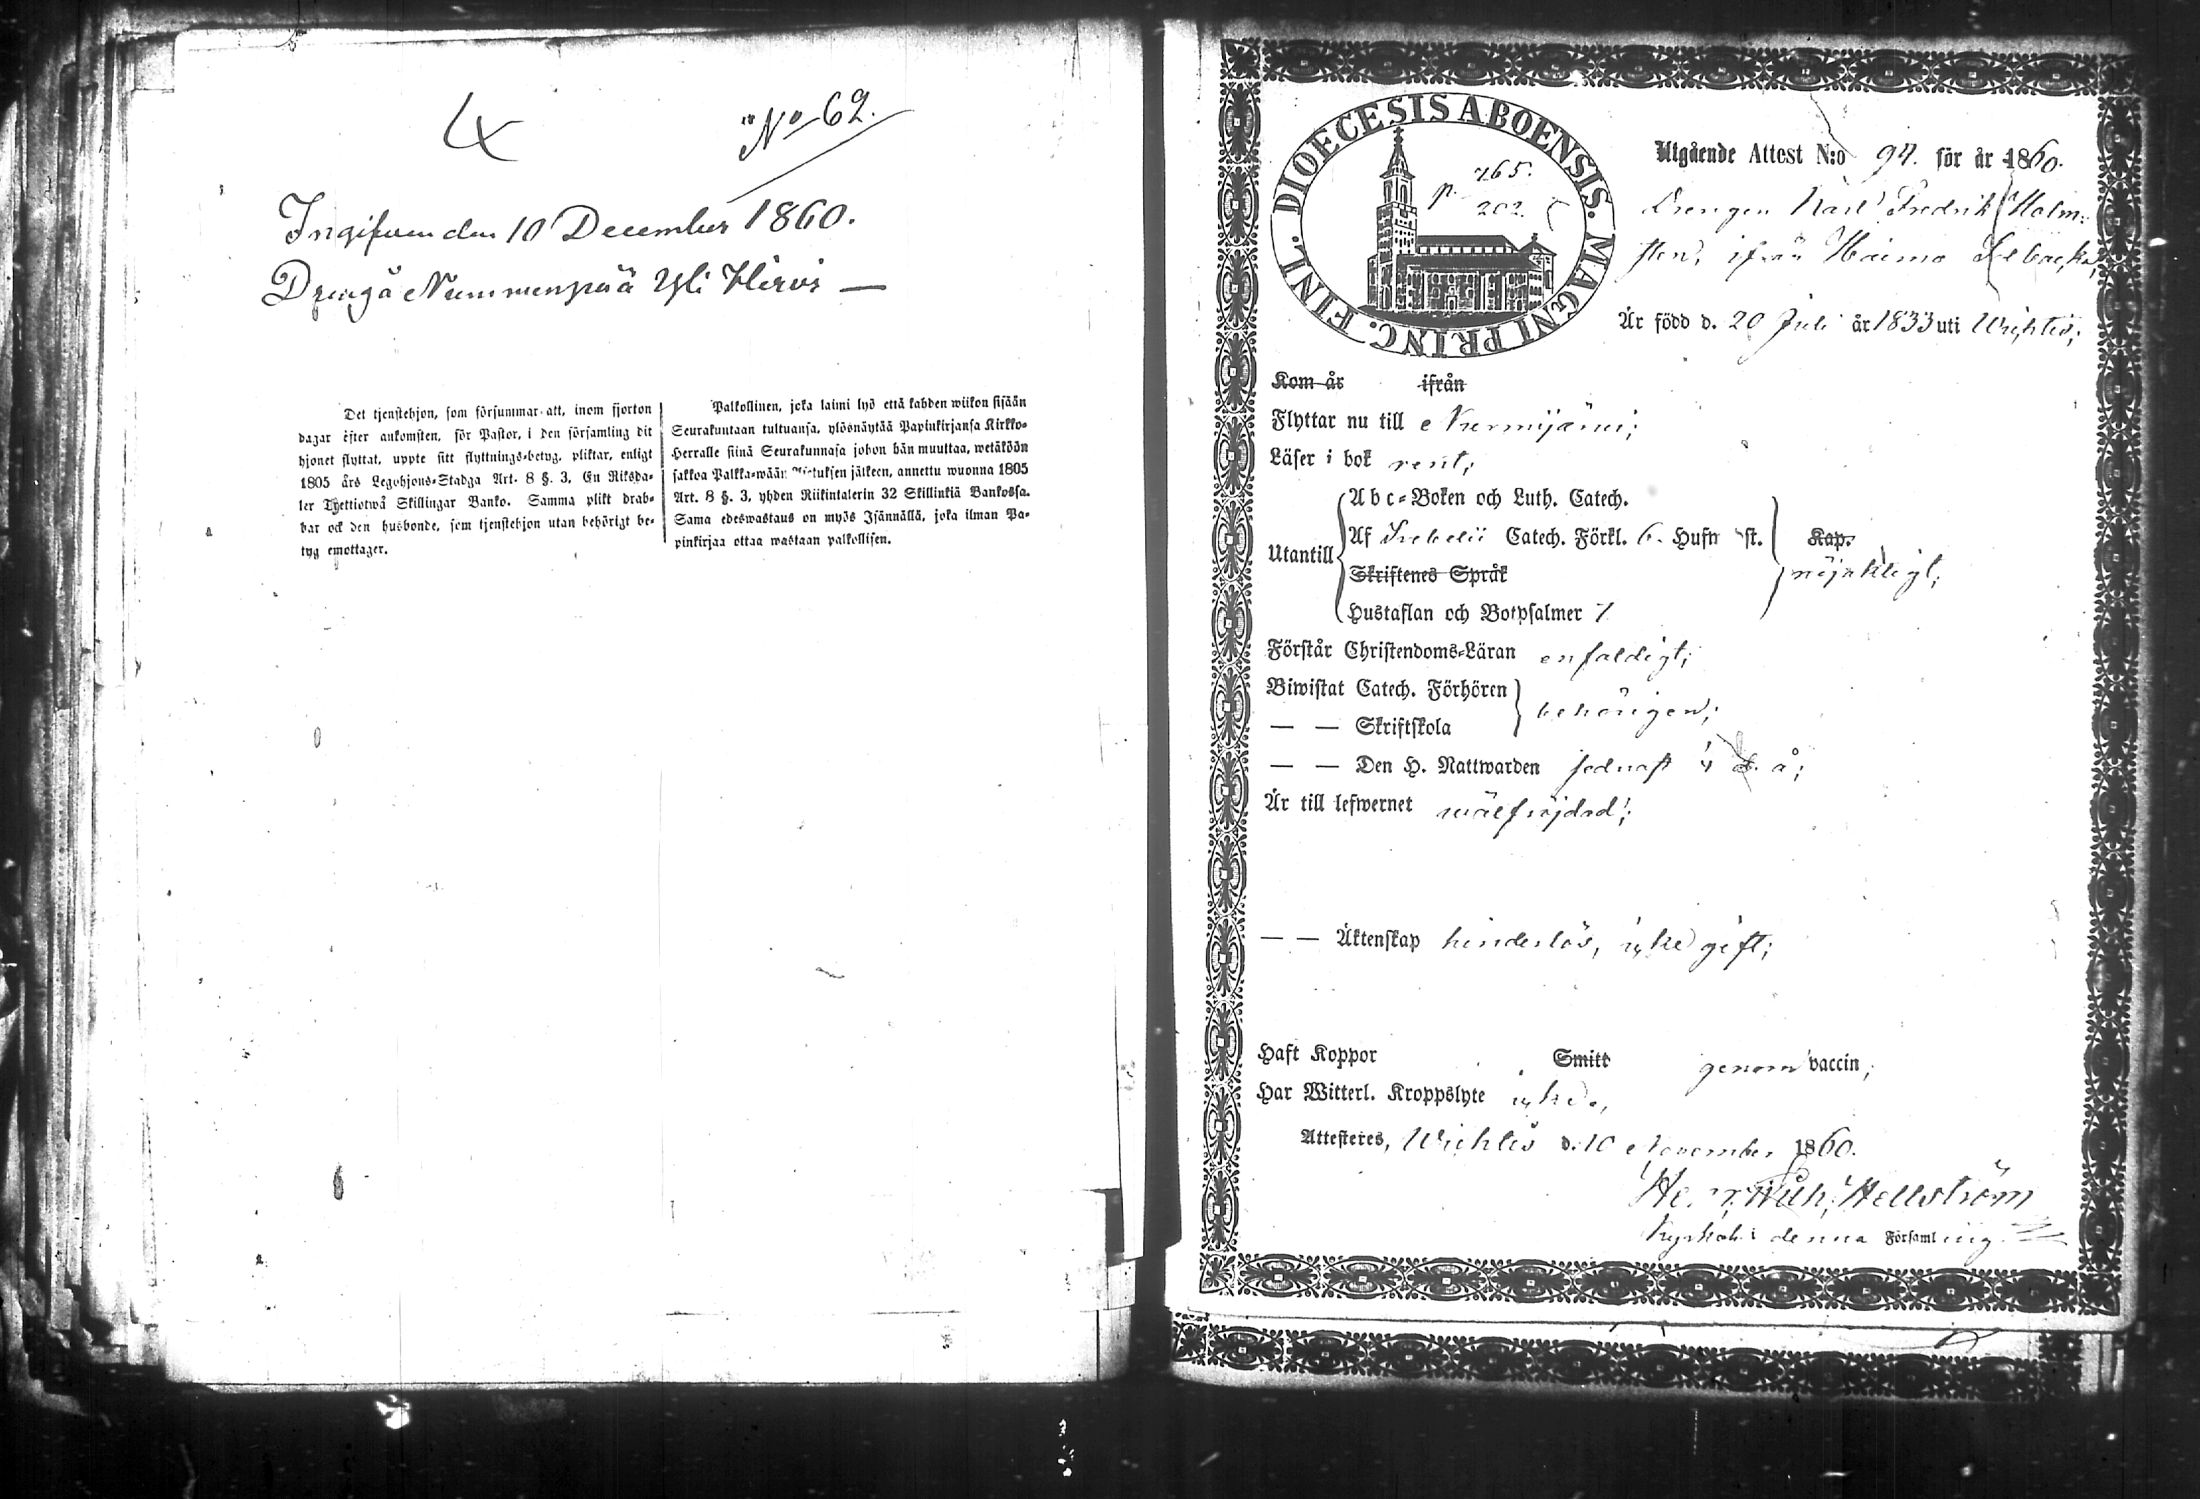 4
No 62.
Ingifven den 10 December 1860.
Dreng å Nummenpää Yli Hirvi —
Det tjenstehjon, som försummar att, inom fjorton
dagar efter ankomsten, för Pastor, i den församling dit
hjonet flyttat, uppte sitt flyttnings-betyg, pliktar, enligt
1805 års Legohjons-Stadga Art. 8 §. 3, En Riksda-
ler Trettiotwå Skillingar Banko. Samma plikt drab-
bar ock den husbonde, som tjenstehjon utan behörigt be-
tyg emottager.
Palkollinen, joka laimi lyö että kahden wiikon sisään
Seurakuntaan tultuansa, ylösnäytää Papinkirjansa Kirkko-
Herralle siinä Seurakunnasa johon hän muuttaa, wetäköön
sakkoa Palkka-wään jälkeen, annettu wuonna 1805
Art. 8 §. 3, yhden Riikintalerin 32 Skillinkiä Bankossa.
Sama edeswastaus on myös Isännällä, joka ilman Pa-
pinkirjaa ottaa wastaan palkollisen.
DIOECESIS ABOENSIS. MAGNI PRINC. FINL.
p. 765.
202.
Utgående Attest N:o 94. för år 1860.
Drengen Karl Fredrik Holm-
sten, ifrån Haimo
Är född d. 20 Juli år 1833 uti Wichtis;
Kom år ifrån
Flyttar nu till Nurmijärvi;
Läser i bok rent;
Utantill
Abc-Boken och Luth. Catech.
Af Svebelii Catech. Förkl. 6. Hufvudst.
Kap.
Skriftenes Språk
nöjaktligt;
Hustaflan och Botpsalmer 7
Förstår Christendoms-Läran enfaldigt;
Biwistat Catech. Förhören
behörigen;
— — Skriftskola
— — Den H. Nattwarden sednast i d. å;
Är till lefwernet wälfrejdad;
— — Äktenskap hinderlös, icke gift;
Haft Koppor Smitt genom vaccin;
Har Witterl. Kroppslyte icke,
Attesteres, Wichtis d. 10 November 1860.
Wilh. Hellström
Kyrkoh. i denna Församling.